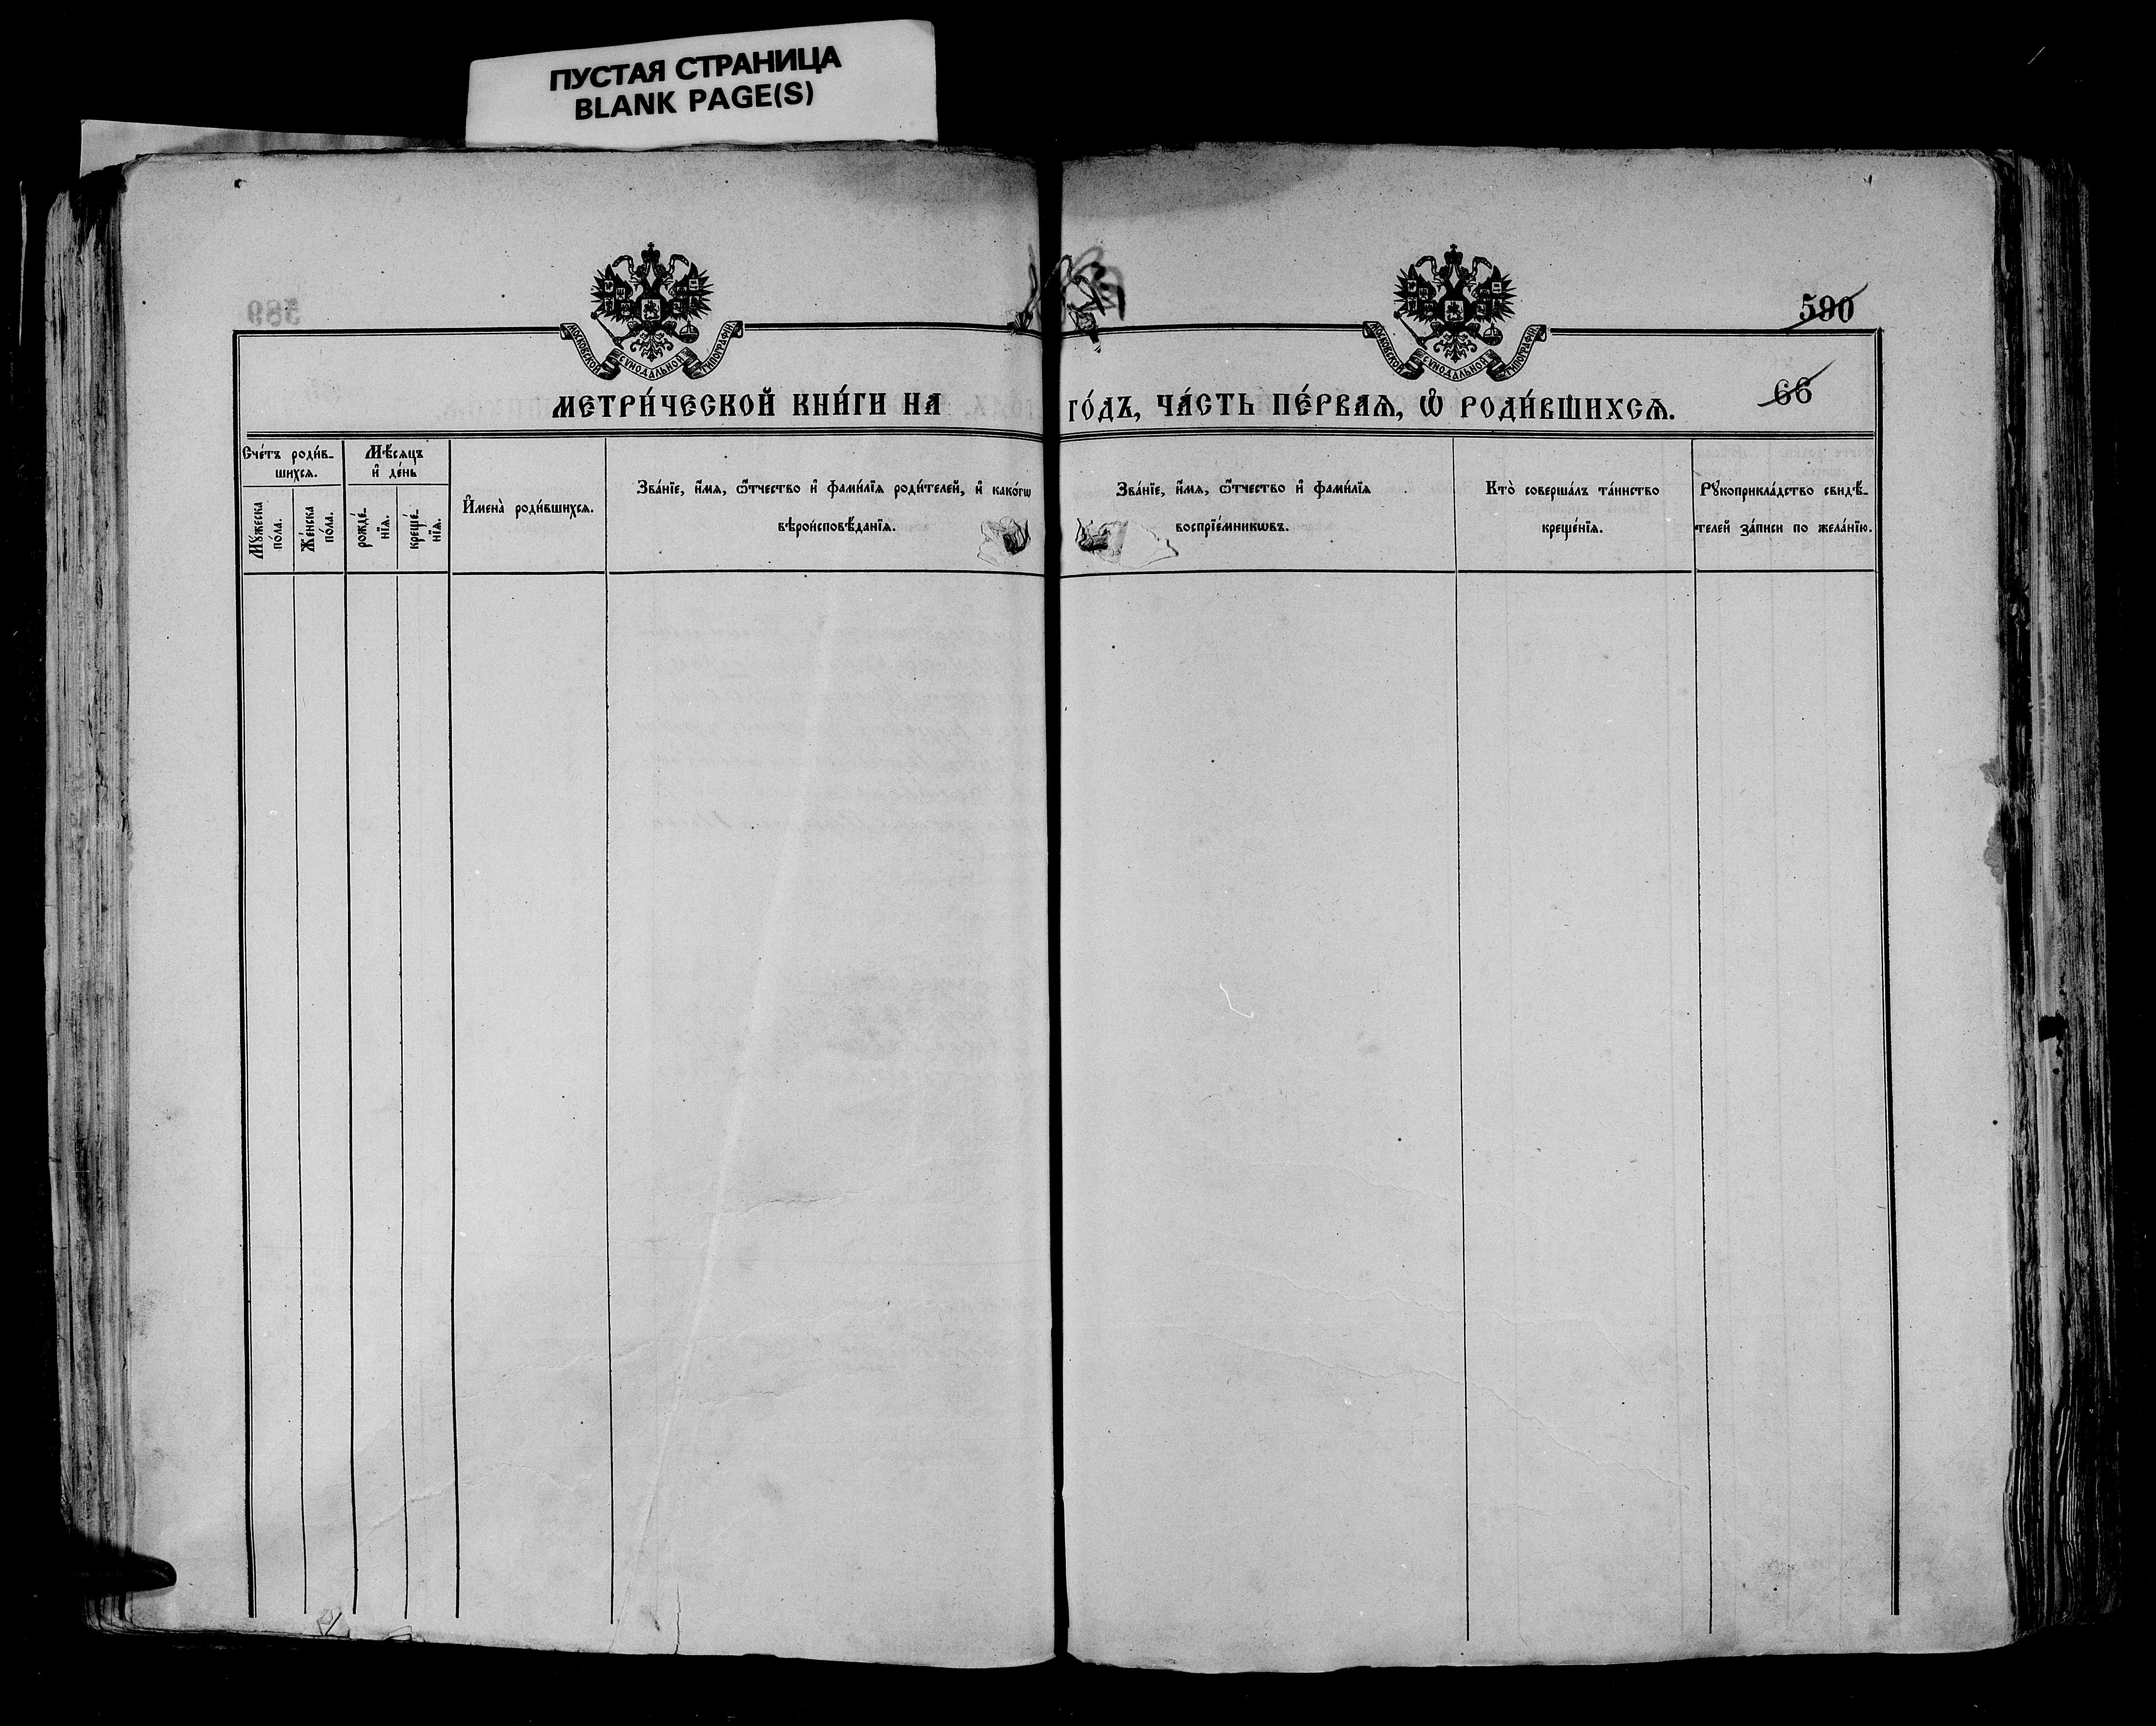 ПУСТАЯ СТРАНИЦА
BLANK PAGE(S)
МОСКОВСКОЙ СѴНОДАЛЬНОЙ ТИПОГРАФІИ
МОСКОВСКОЙ СѴНОДАЛЬНОЙ ТИПОГРАФІИ
590
66
МЕТРИ́ЧЕСКОЙ КНИ́ГИ НА ГО́ДЪ, ЧА́СТЬ ПЕ́РВАѦ, Ѡ҆ РОДИ́ВШИХСѦ.
Сче́тъ роди́в-
шихсѧ.
Мꙋ́жеска
по́ла.
Же́нска
по́ла.
Мѣ́сѧцъ
и҆ де́нь
рожде́-
нїѧ.
креще́-
нїѧ.
И҆мена̀ роди́вшихсѧ.
Зва́нїе, и҆́мѧ, ѻ҆́тчество и҆ фами́лїѧ роди́телей, и҆ како́гѡ
вѣроисповѣ́данїѧ.
Зва́нїе, и҆́мѧ, ѻ҆́тчество и҆ фами́лїѧ
воспрїе́мникѡвъ.
Кто̀ соверша́лъ та́инство
креще́нїѧ.
Рꙋкоприкла́дство свидѣ́-
телей за́писи по жела́нїю.